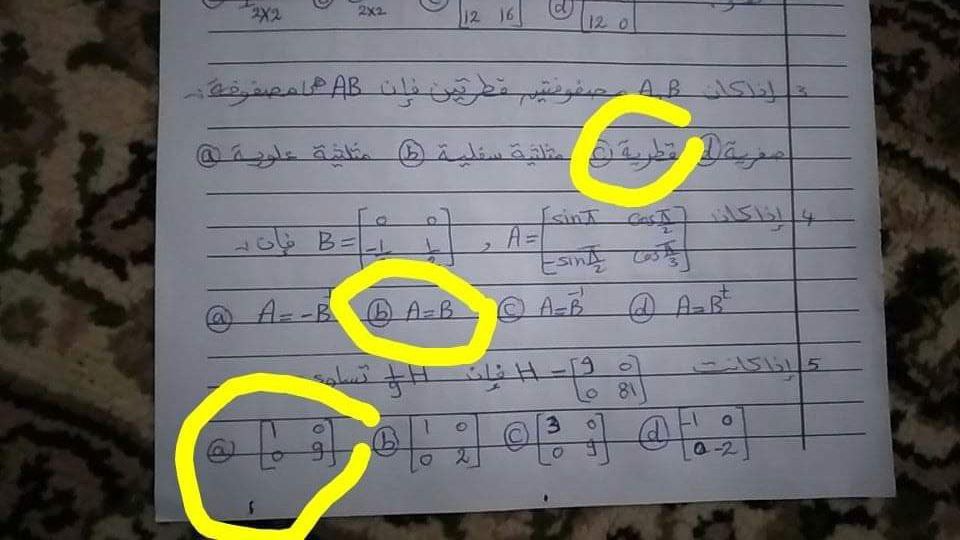 2x2 2x2 ⓒ [12 16] ⓓ [12 0]
3 إذا كان A, B مصفوفتين قطريتين فإن AB هي مصفوفة
ⓐ مثلثية علوية ⓑ مثلثية سفلية ⓒ قطرية ⓓ صفرية
4 إذا كان A = [sinπ cosπ/2 ; -sinπ/2 cosπ/3] , B = [0 0 ; -1 1/2] فإن
ⓐ A = -B ⓑ A=B ⓒ A=B⁻¹ ⓓ A=Bᵗ
5 إذا كانت H = [9 0 ; 0 81] فإن 1/9 H تساوي
ⓐ [1 0 ; 0 9] ⓑ [1 0 ; 0 2] ⓒ [3 0 ; 0 9] ⓓ [-1 0 ; 0 -2]